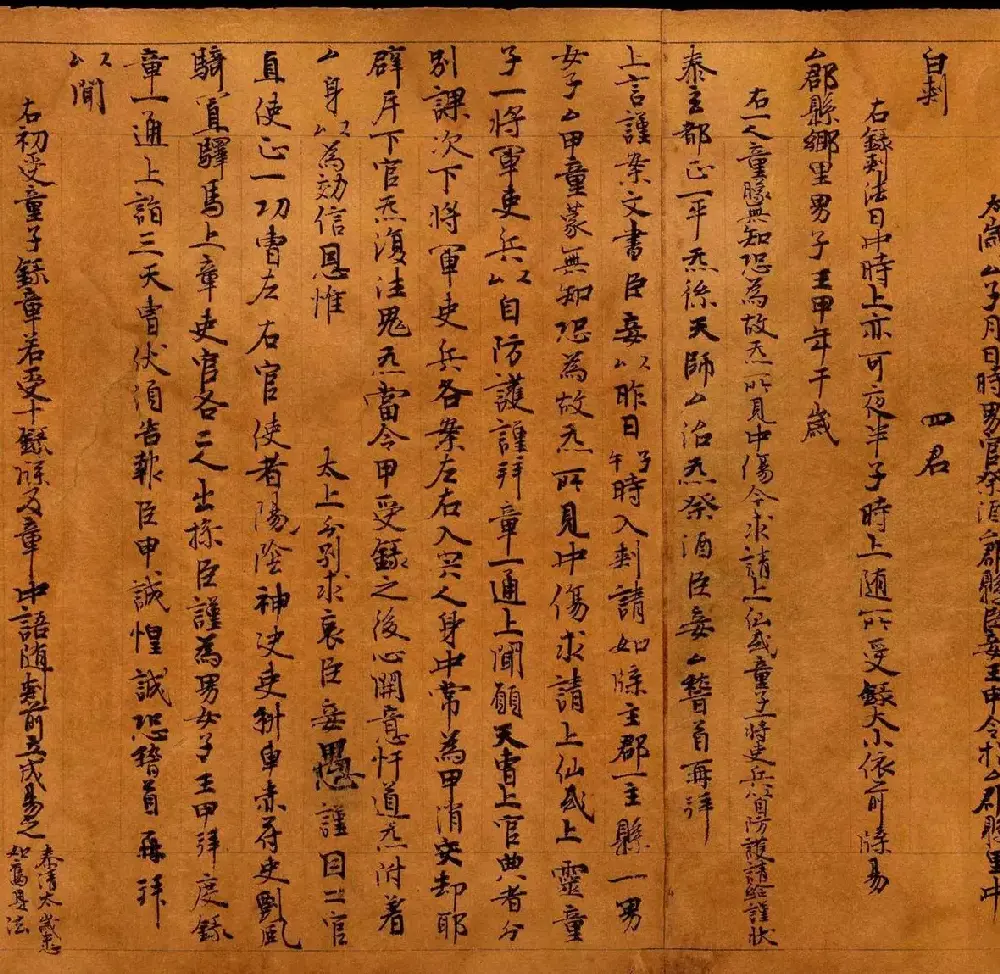 太歲厶子月日時男官祭酒厶郡縣臣妾王甲今於厶郡縣里中
白刺　四君
右錄刺法日中時上亦可夜半子時上随所受錄大小依前牒易
厶郡縣鄉里男子王甲年干歲
右一人童矇無知恐為故炁所見中傷今求請上仙或童子一將吏兵以自防護請給謹狀
泰玄都正一平炁係天師厶治炁祭酒臣妾厶稽首再拜
上言謹案文書臣妾以昨日子午時入刺請如牒主郡一主縣一男
女子厶甲童蒙無知恐為故炁所見中傷求請上仙或上靈童
子一將軍吏兵以自防護謹拜章一通上聞願天曹上官典者分
別課次下將軍吏兵各案左右入冥人身中常為甲消灾却耶
辟斥下官炁復注鬼炁當令甲受錄之後心開意忓道炁附着
厶身以為効信恩惟　太上分別求哀臣妾愚謹因二官
直使正一功曹左右官使者陽陰神决吏科車赤苻吏剛風
騎置驛馬上章吏官各二人出操臣謹為男女子王甲拜度錄
章一通上詣三天曹伏須告報臣甲誠惶誠恐稽首再拜
以聞
右初受童子錄章若受十錄牒及章中語随刺前立或易之
泰清太歲悉
如舊是法